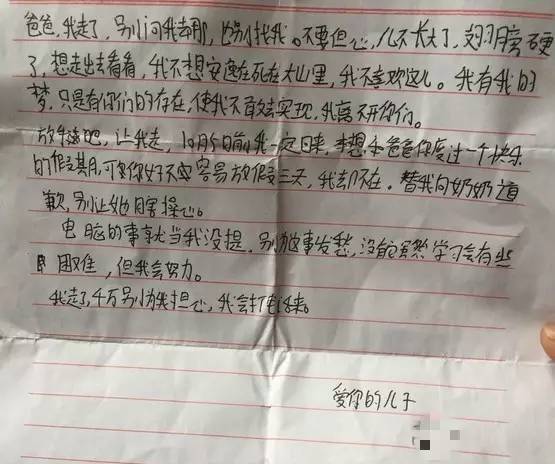 爸爸，我走了，别问我去那，也别找我。不要但心，儿子长大了，翅膀硬
了，想走出去看看，我不想安逸在死在大山里，我不喜欢这儿。我有我的
梦，只是有你们的存在，使我不敢去实现，我离不开你们。
放手吧，让我走，10月5日前我一定回来，本想和爸爸你度过一个快乐
的假期，可是你好不容易放假三天，我却不在。替我向奶奶道
歉，别让她瞎操心。
电脑的事就当我没提，别为此事发愁，没它虽然学习会有些
困难，但我会努力。
我走了，千万别为我担心，我会打电话来。
爱你的儿子